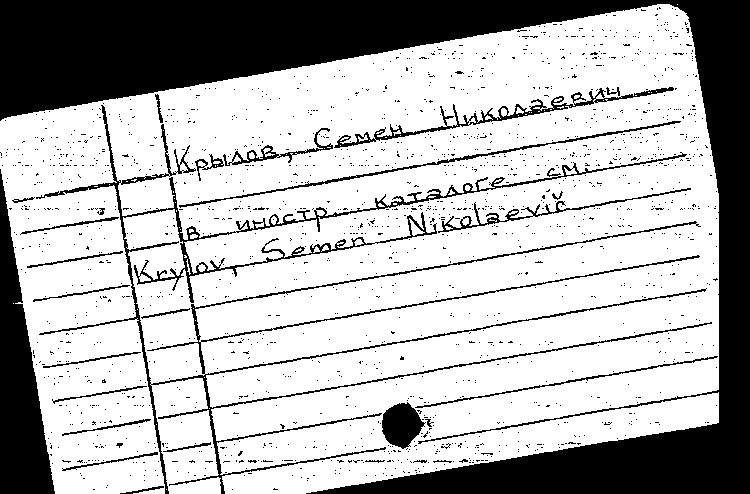 Крылов, Семен Николаевич
в иностр. каталоге см.
Krylov, Semen Nikolaevič